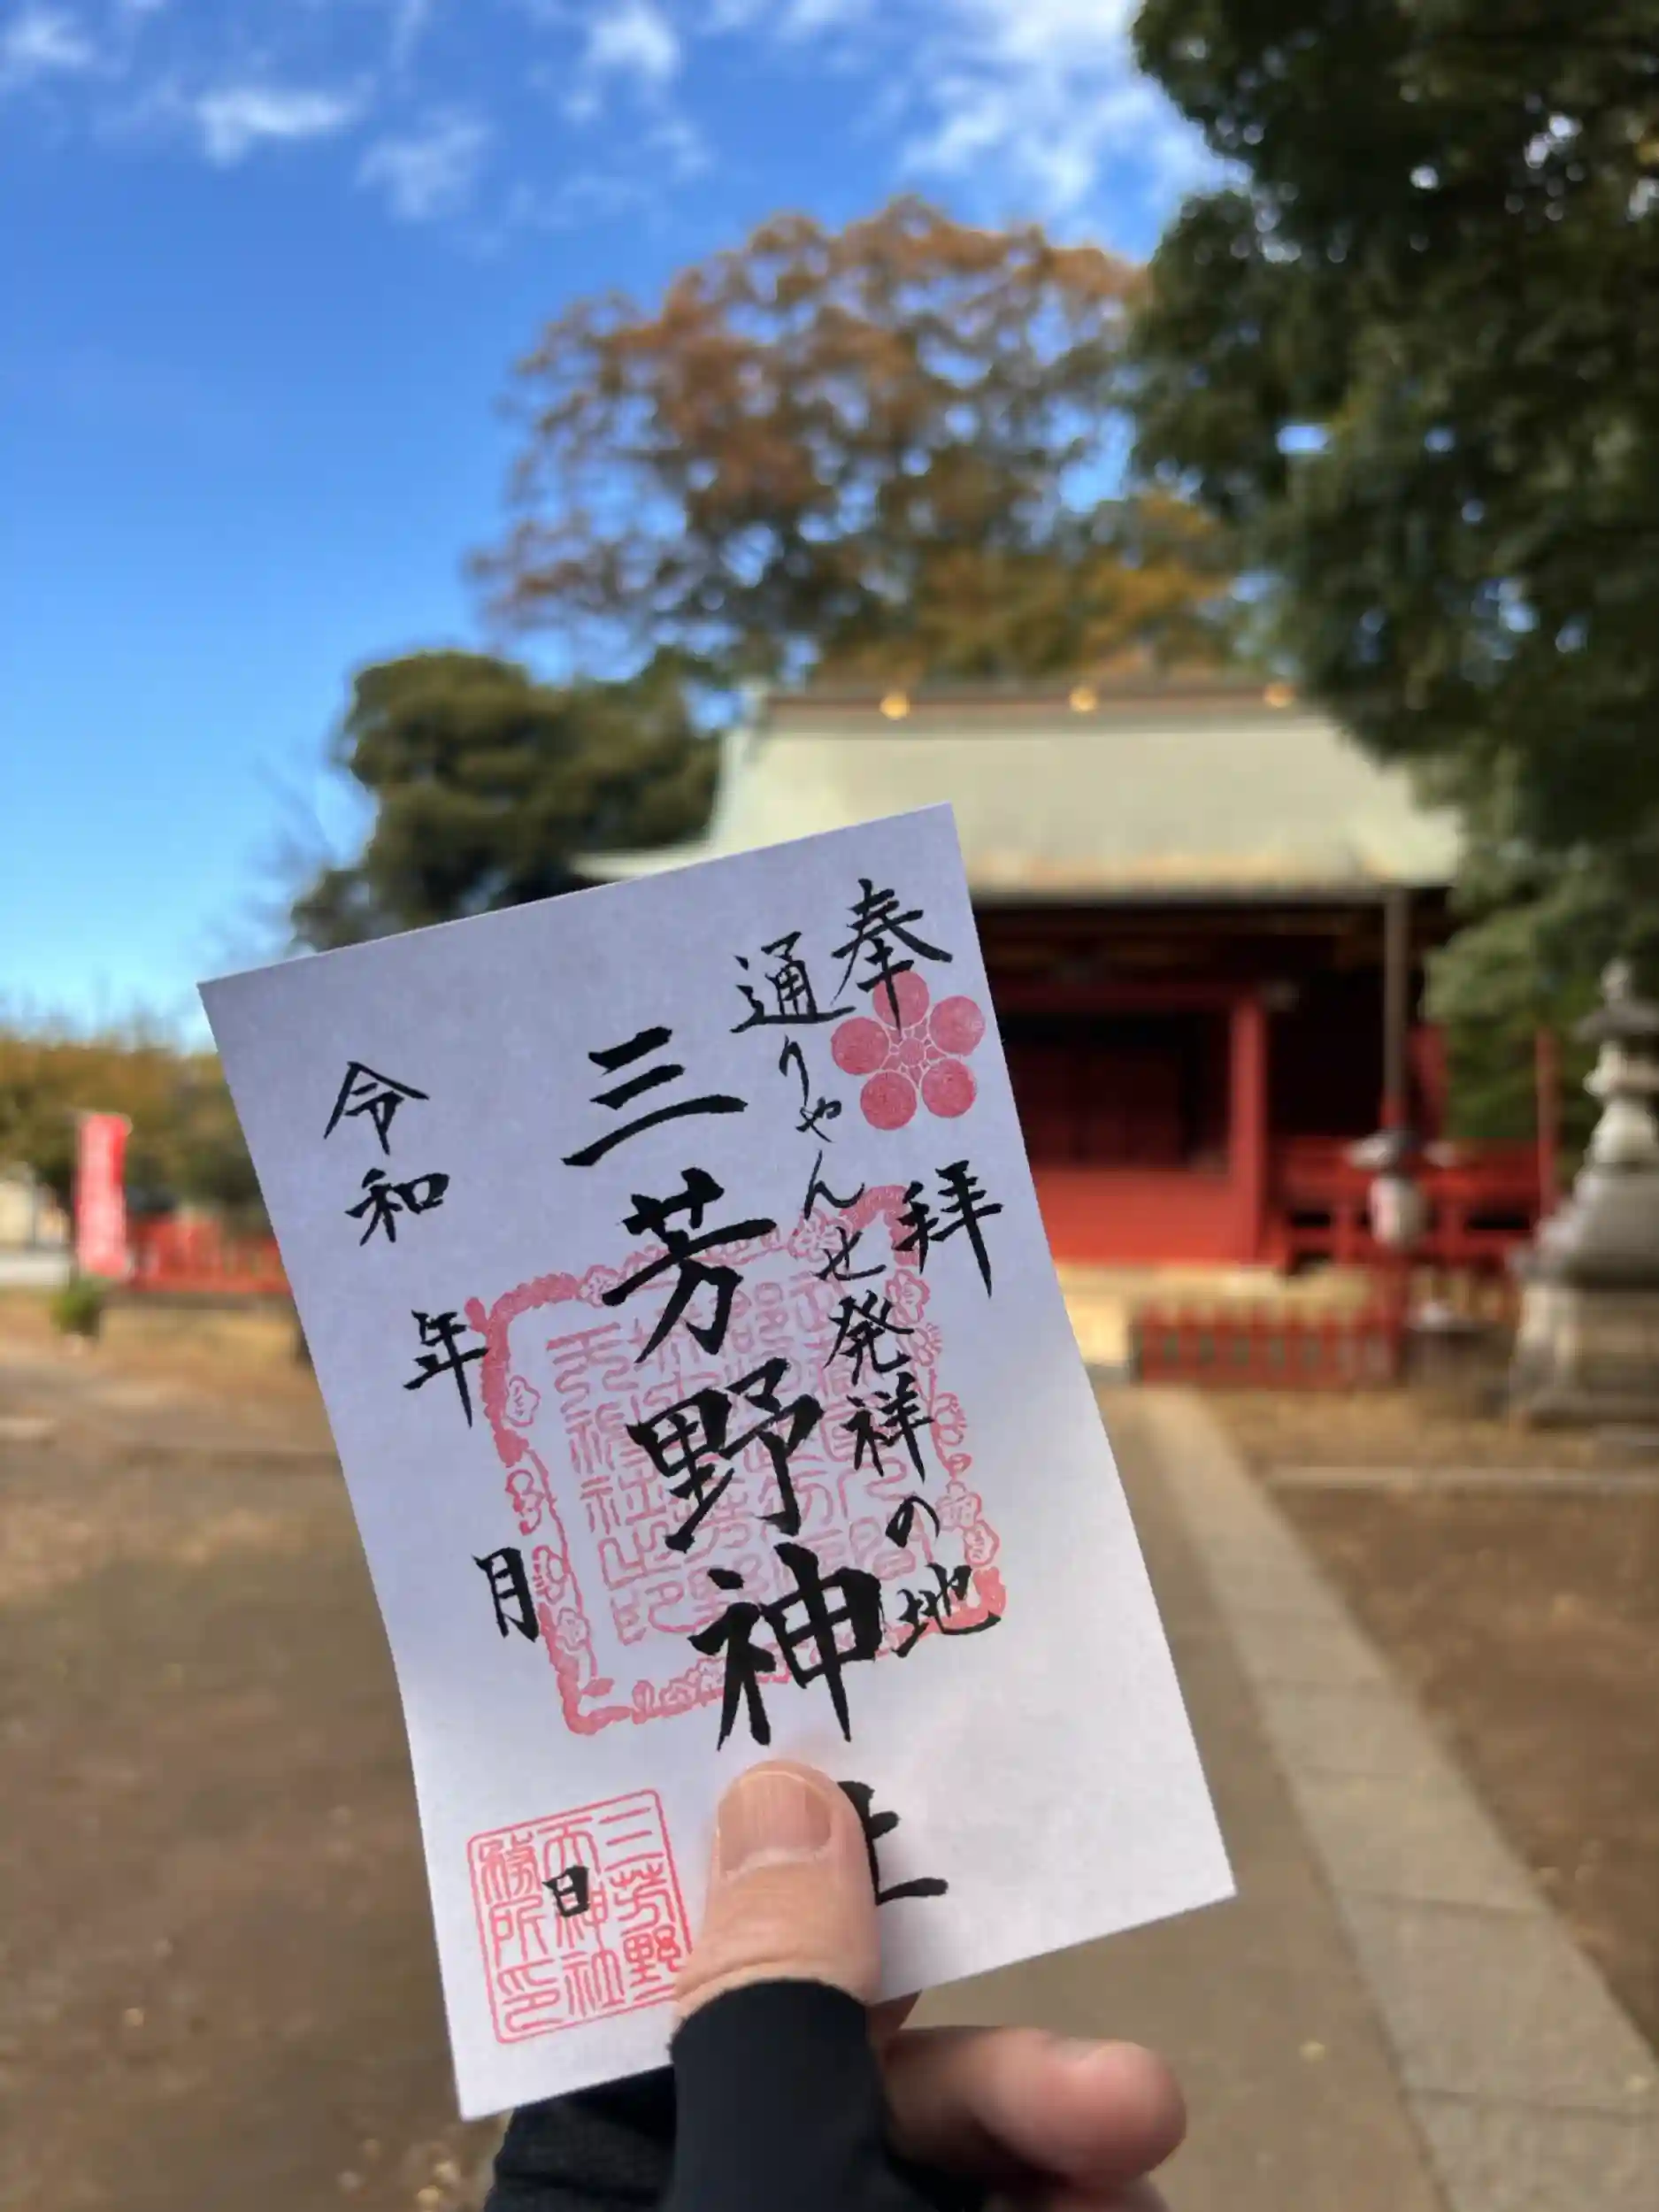 奉拝
通りゃんせ発祥の地
三芳野神社
令和 年 月 日
三芳野
天神社
務所印